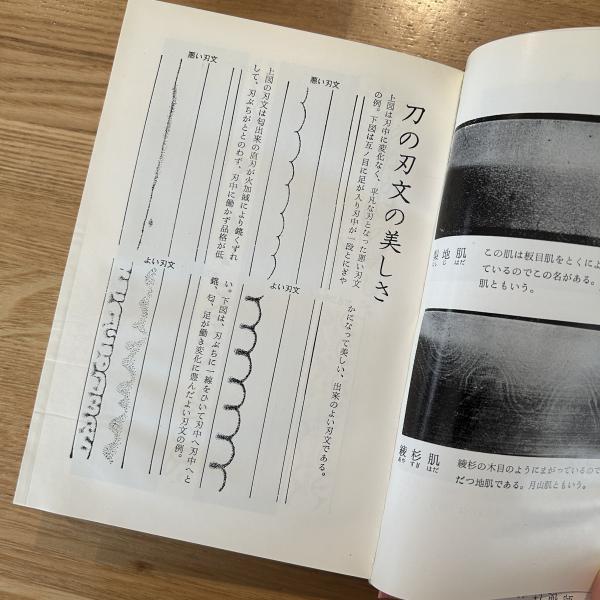 刀の刃文の美しさ
悪い刃文
上図は刃中に変化なく、平凡な刃となった悪い刃文
の例。下図は互ノ目に足が入り刃中が一段とにぎや
よい刃文
かになって美しい、出来のよい刃文である。
悪い刃文
上図の刃文は匂出来の直刃が火加減により鋩くずれ
して、刃ぶちがととのわず、刃中に働かず品格が低
よい刃文
い。下図は、刃ぶちに一線をひいて刃中へ刃中へと
錵、匂、足が働き変化に豊んだよい刃文の例。
地肌
じはだ
この肌は板目肌をとくによ
ているのでこの名がある。
肌ともいう。
綾杉肌
あやすぎはだ
綾杉の木目のようにまがっているので
だつ地肌である。月山肌ともいう。